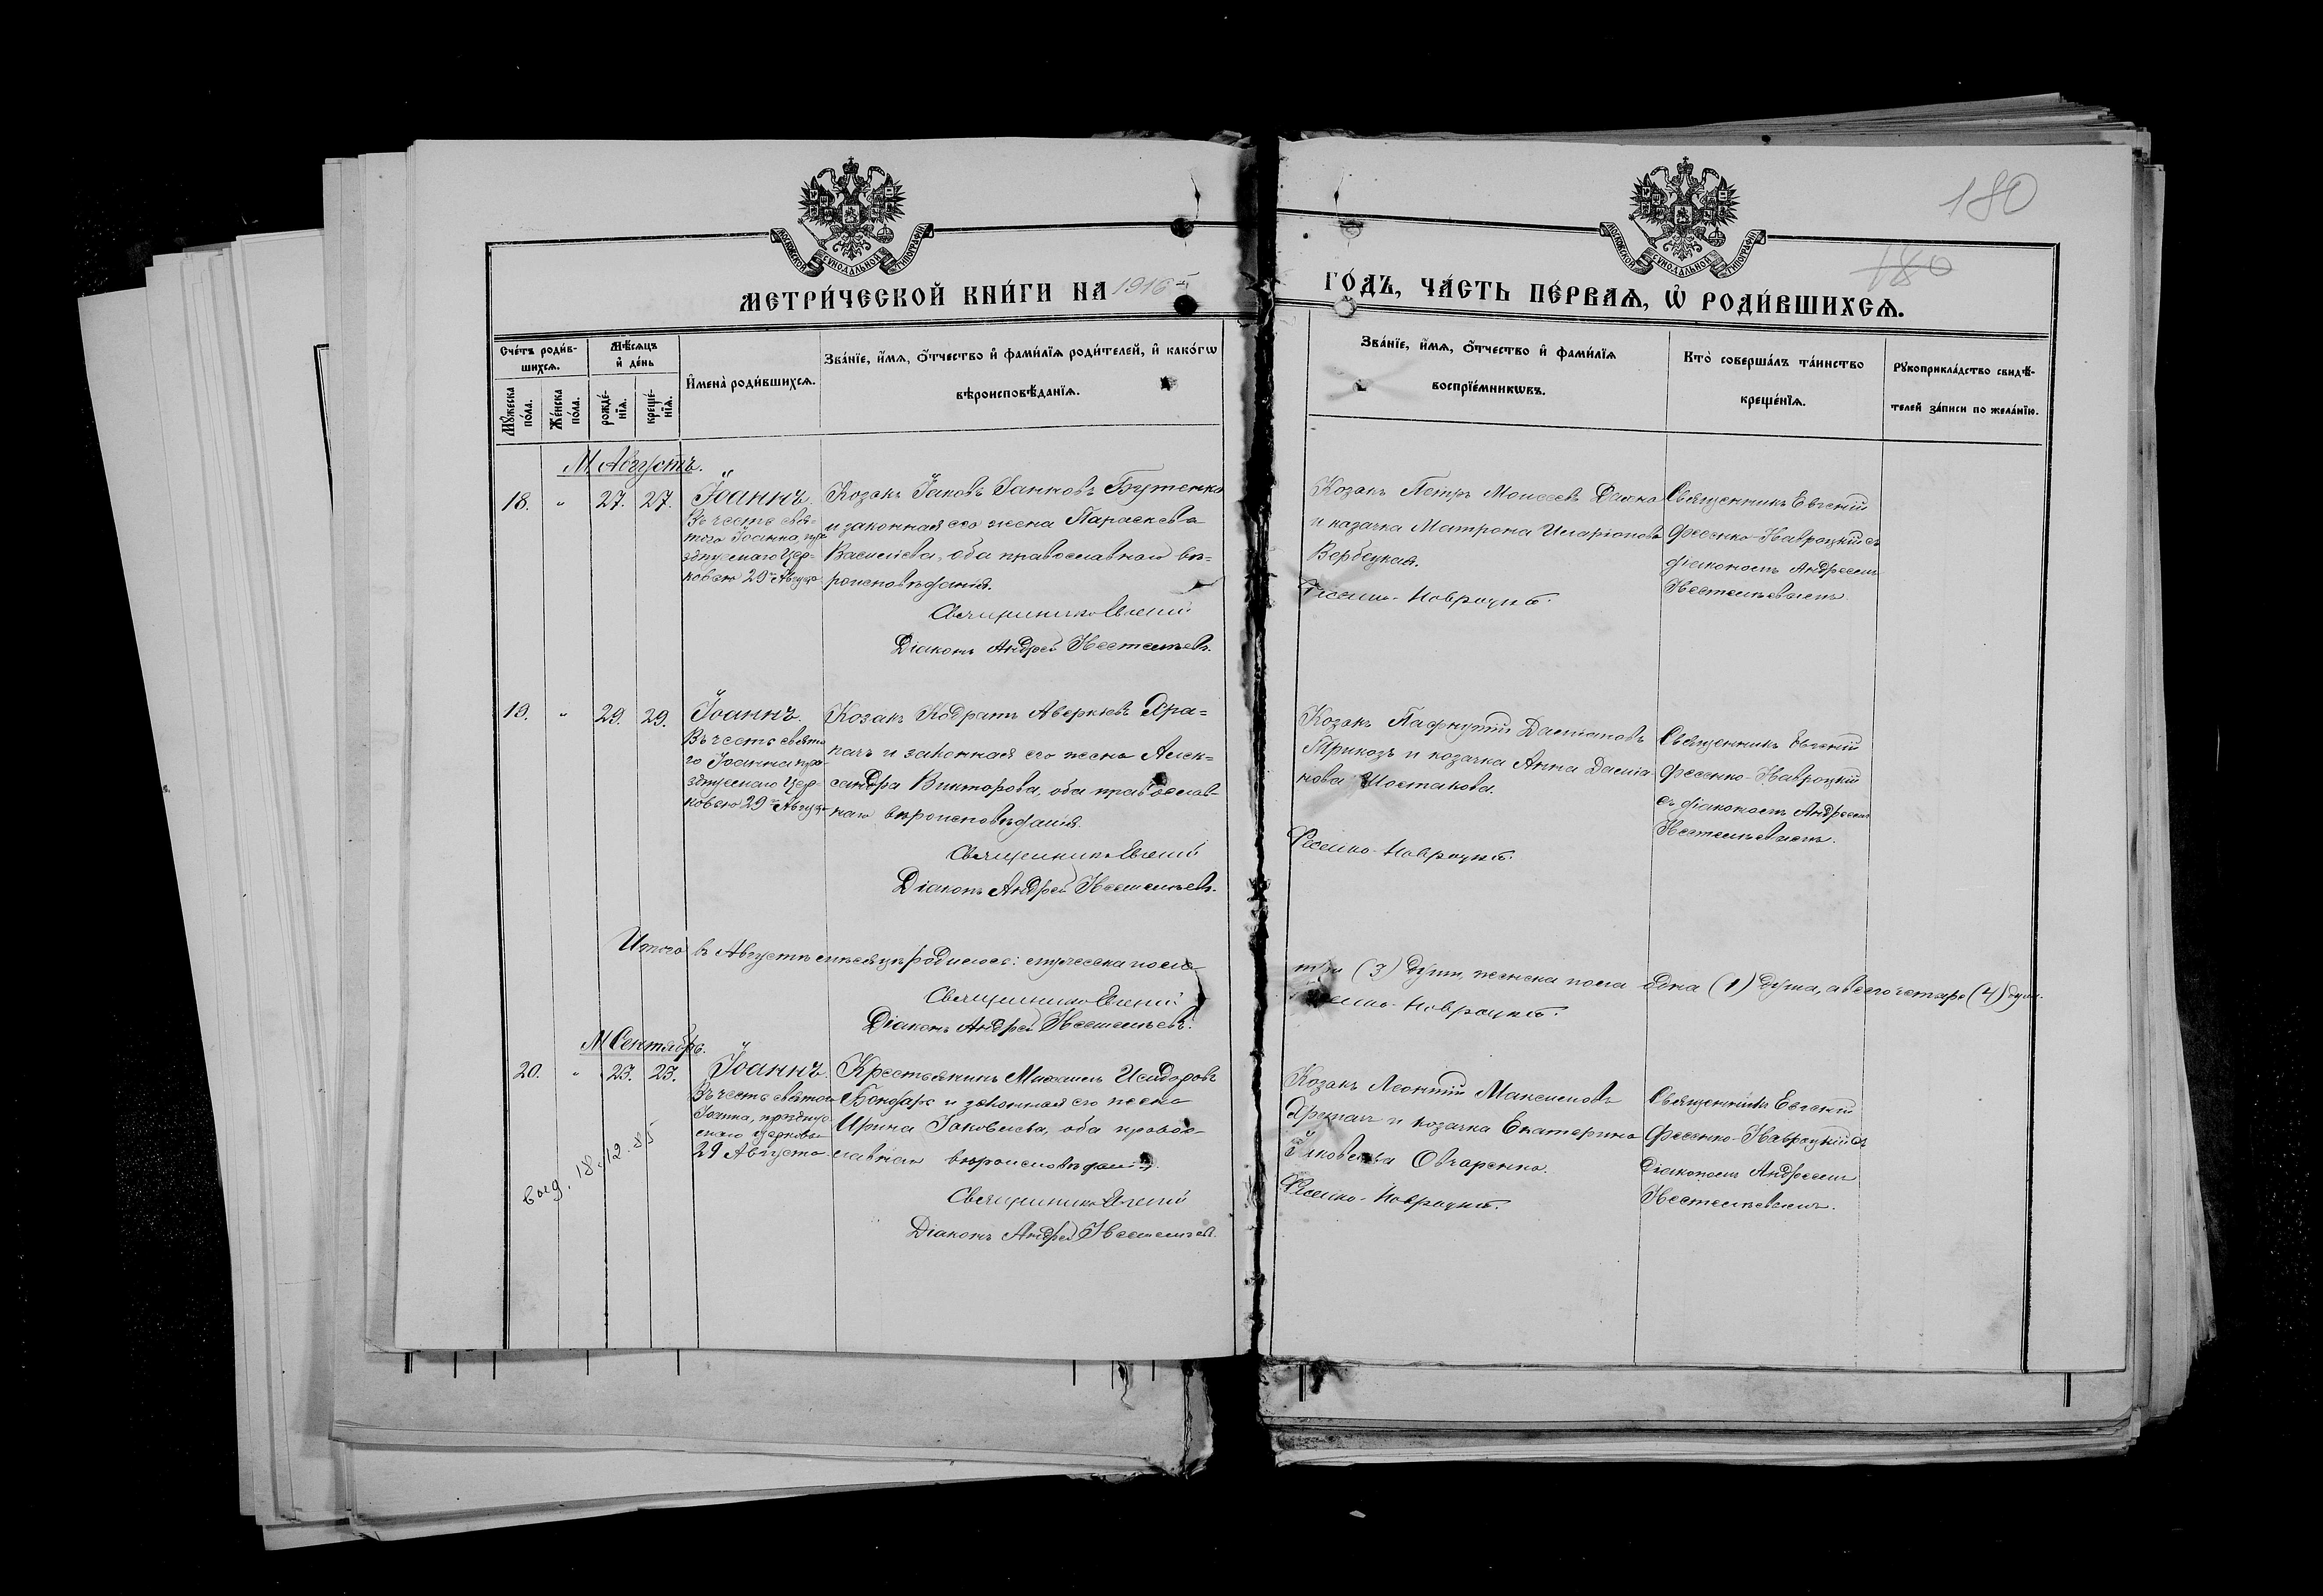 180
180
МЕТРИ́ЧЕСКОЙ КНИ́ГИ НА 1916 й
ГО́ДЪ, ЧА́СТЬ ПЕ́РВАѦ, Ѡ҆ РОДИ́ВШИХСѦ.
Сче́тъ роди́в-
шихсѧ.
Мꙋ́жеска по́ла.
Же́нска по́ла.
Мѣ́сѧцъ
и҆ де́нь
рожде́-
нїѧ.
креще́-
нїѧ.
И҆мена̀ роди́вшихсѧ.
Зва́нїе, и҆́мѧ, ѻ҆́тчество и҆ фами́лїѧ роди́телей, и҆ како́гѡ
вѣроисповѣ́данїѧ.
Зва́нїе, и҆́мѧ, ѻ҆́тчество и҆ фами́лїѧ
воспрїе́мникѡвъ.
Кто̀ соверша́лъ та́инство
креще́нїѧ.
Рꙋкоприкла́дство свидѣ́-
телей за́писи по жела́нїю.
М. Августъ.
18. " 27. 27. Іоаннъ.
Въ честь свя-
того Іоанна, пра
зднуемаго Цер-
ковью 29го Августа
Козакъ Іаковъ Бутенко
и законная его жена Параскева
Василіева, оба православнаго вѣ-
роисповѣданія.
Священникъ Евгеній
Діаконъ Андрей
Козакъ Петръ Моисеевъ
и казачка Матрона Иларіонова
Вербецкая.
Фесенко-Навроцкій.
Священникъ Евгеній
Фесенко-Навроцкій съ
діакономъ Андреемъ
19. " 29. 29. Іоаннъ.
Въ честь свято
го Іоанна пра-
зднуемаго Цер-
ковью 29го Августа
Козакъ Кодратъ Аверкіевъ Хра-
пачъ и законная его жена Алек-
сандра Викторова, оба православ-
наго вѣроисповѣданія.
Священникъ Евгеній
Діаконъ Андрей
Козакъ Пафнутій Даміановъ
Прихозъ и козачка Анна Даміа
нова Шостакова.
Фесенко-Навроцкій.
Священникъ Евгеній
Фесенко-Навроцкій
съ діакономъ Андреемъ
Итого въ Августѣ мѣсяцѣ родилось: мужеска пола
три (3) душ, женска пола одна (1) душа, а всего четыре (4) душ.
Священникъ Евгеній
Фесенко-Навроцкій.
Діаконъ Андрей
М. Сентябрь.
20. " 23. 25. Іоаннъ.
Въ честь святого
Іоанна, праздну-
емаго церковью
29 Августа
Крестьянинъ Михаилъ Исидоровъ
Бондарь и законная его жена
Ирина Іаковлева, оба правос-
лавнаго вѣроисповѣданія.
Священникъ Евгеній
Діаконъ Андрей
Козакъ Леонтій Максимовъ
Храпачъ и козачка Екатерина
Іаковлева Овчаренко.
Фесенко-Навроцкій.
Священникъ Евгеній
Фесенко-Навроцкій съ
Діакономъ Андреемъ
выд. 18.12.55